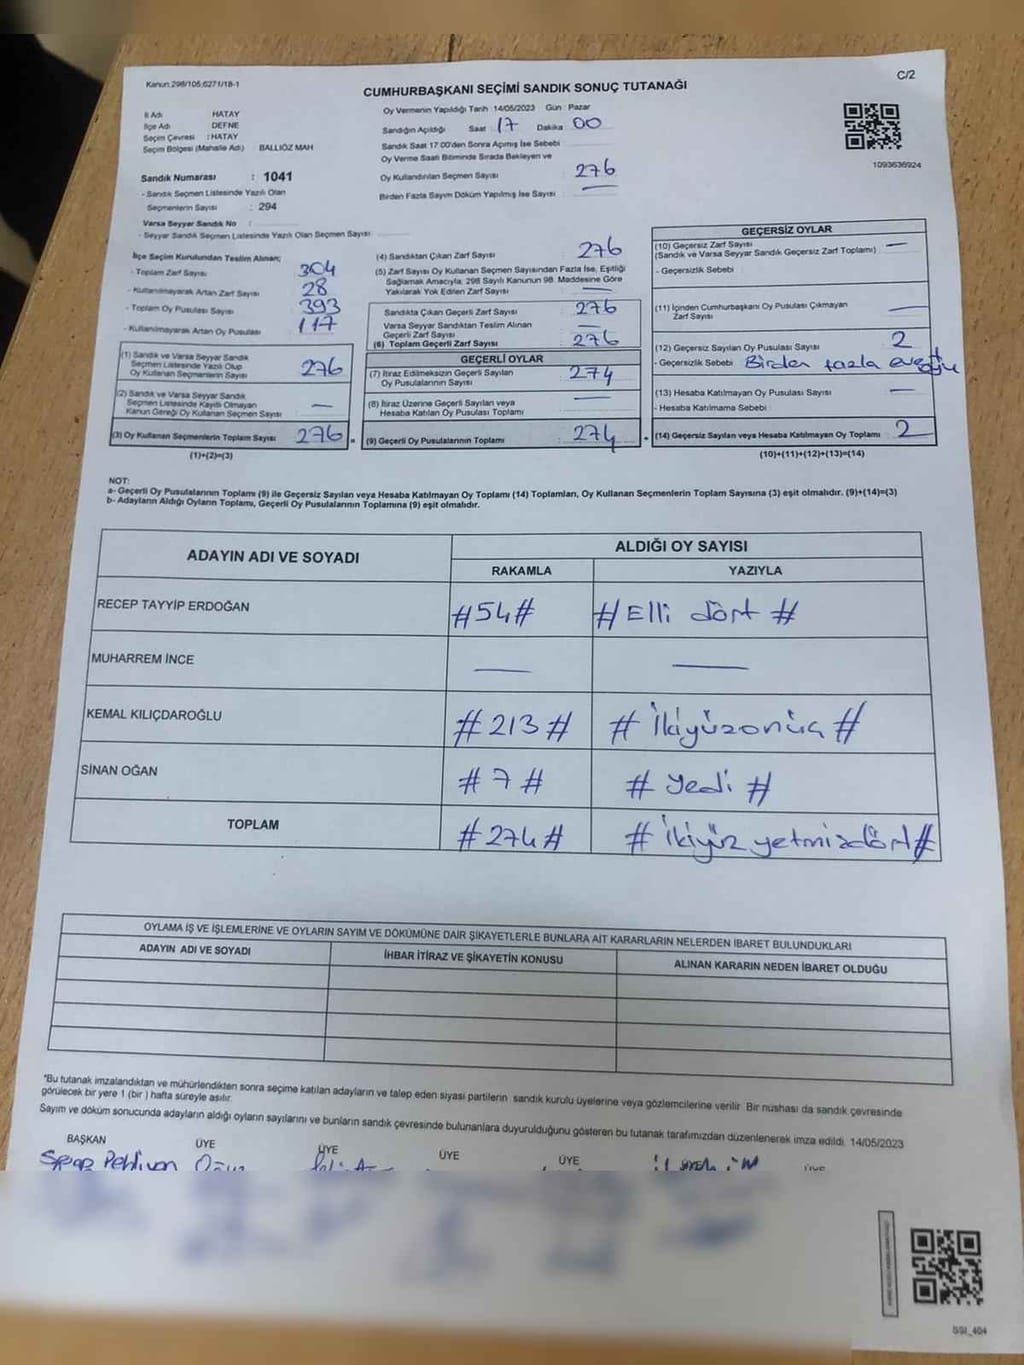 Kanun:298/105;6271/18-1
C/2
CUMHURBAŞKANI SEÇİMİ SANDIK SONUÇ TUTANAĞI
İl Adı HATAY
İlçe Adı DEFNE
Seçim Çevresi :HATAY
Seçim Bölgesi (Mahalle Adı) BALLIÖZ MAH
Sandık Numarası : 1041
- Sandık Seçmen Listesinde Yazılı Olan
Seçmenlerin Sayısı : 294
Varsa Seyyar Sandık No :
- Seyyar Sandık Seçmen Listesinde Yazılı Olan Seçmen Sayısı
Oy Vermenin Yapıldığı Tarih 14/05/2023 Gün : Pazar
Sandığın Açıldığı Saat 17 Dakika 00
Sandık Saat 17:00'den Sonra Açımış İse Sebebi
Oy Verme Saati Bitiminde Sırada Bekleyen ve
Oy Kullandırılan Seçmen Sayısı 276
Birden Fazla Sayım Döküm Yapılmış İse Sayısı —
1093636924
İlçe Seçim Kurulundan Teslim Alınan;
- Toplam Zarf Sayısı 304
- Kullanılmayarak Artan Zarf Sayısı 28
- Toplam Oy Pusulası Sayısı 393
- Kullanılmayarak Artan Oy Pusulası 117
(1) Sandık ve Varsa Seyyar Sandık
Seçmen Listesinde Yazılı Olup
Oy Kullanan Seçmenlerin Sayısı 276
(2) Sandık ve Varsa Seyyar Sandık
Seçmen Listesinde Kayıtlı Olmayan
Kanun Gereği Oy Kullanan Seçmen Sayısı —
(3) Oy Kullanan Seçmenlerin Toplam Sayısı 276 =
(1)+(2)=(3)
(4) Sandıktan Çıkan Zarf Sayısı 276
(5) Zarf Sayısı Oy Kullanan Seçmen Sayısından Fazla İse, Eşitliği
Sağlamak Amacıyla, 298 Sayılı Kanunun 98. Maddesine Göre
Yakılarak Yok Edilen Zarf Sayısı —
Sandıkta Çıkan Geçerli Zarf Sayısı 276
Varsa Seyyar Sandıktan Teslim Alınan
Geçerli Zarf Sayısı —
(6) Toplam Geçerli Zarf Sayısı 276
GEÇERLİ OYLAR
(7) İtiraz Edilmeksizin Geçerli Sayılan
Oy Pusulasının Sayısı 274
(8) İtiraz Üzerine Geçerli Sayılan veya
Hesaba Katılan Oy Pusulası Toplamı —
(9) Geçerli Oy Pusulalarının Toplamı 274 +
GEÇERSİZ OYLAR
(10) Geçersiz Zarf Sayısı —
(Sandık ve Varsa Seyyar Sandık Geçersiz Zarf Toplamı)
- Geçersizlik Sebebi
(11) İçinden Cumhurbaşkanı Oy Pusulası Çıkmayan
Zarf Sayısı —
(12) Geçersiz Sayılan Oy Pusulası Sayısı 2
- Geçersizlik Sebebi Birden fazla evet
(13) Hesaba Katılmayan Oy Pusulası Sayısı —
- Hesaba Katılmama Sebebi
(14) Geçersiz Sayılan veya Hesaba Katılmayan Oy Toplamı 2
(10)+(11)+(12)+(13)=(14)
NOT:
a- Geçerli Oy Pusulalarının Toplamı (9) ile Geçersiz Sayılan veya Hesaba Katılmayan Oy Toplamı (14) Toplamları, Oy Kullanan Seçmenlerin Toplam Sayısına (3) eşit olmalıdır. (9)+(14)=(3)
b- Adayların Aldığı Oyların Toplamı, Geçerli Oy Pusulalarının Toplamına (9) eşit olmalıdır.
ADAYIN ADI VE SOYADI ALDIĞI OY SAYISI
RAKAMLA YAZIYLA
RECEP TAYYİP ERDOĞAN #54# # Elli dört #
MUHARREM İNCE — —
KEMAL KILIÇDAROĞLU #213# # İkiyüzonüç #
SİNAN OĞAN #7# # Yedi #
TOPLAM #274# # İkiyüz yetmişdört #
OYLAMA İŞ VE İŞLEMLERİNE VE OYLARIN SAYIM VE DÖKÜMÜNE DAİR ŞİKAYETLERLE BUNLARA AİT KARARLARIN NELERDEN İBARET BULUNDUKLARI
ADAYIN ADI VE SOYADI İHBAR İTİRAZ VE ŞİKAYETİN KONUSU ALINAN KARARIN NEDEN İBARET OLDUĞU
*Bu tutanak imzalandıktan ve mühürlendikten sonra seçime katılan adayların ve talep eden siyasi partilerin sandık kurulu üyelerine veya gözlemcilerine verilir. Bir nüshası da sandık çevresinde
görülecek bir yere 1 (bir ) hafta süreyle asılır.
Sayım ve döküm sonucunda adayların aldığı oyların sayılarını ve bunların sandık çevresinde bulunanlara duyurulduğunu gösteren bu tutanak tarafımızdan düzenlenerek imza edildi. 14/05/2023
BAŞKAN ÜYE ÜYE ÜYE ÜYE
Pehlivan